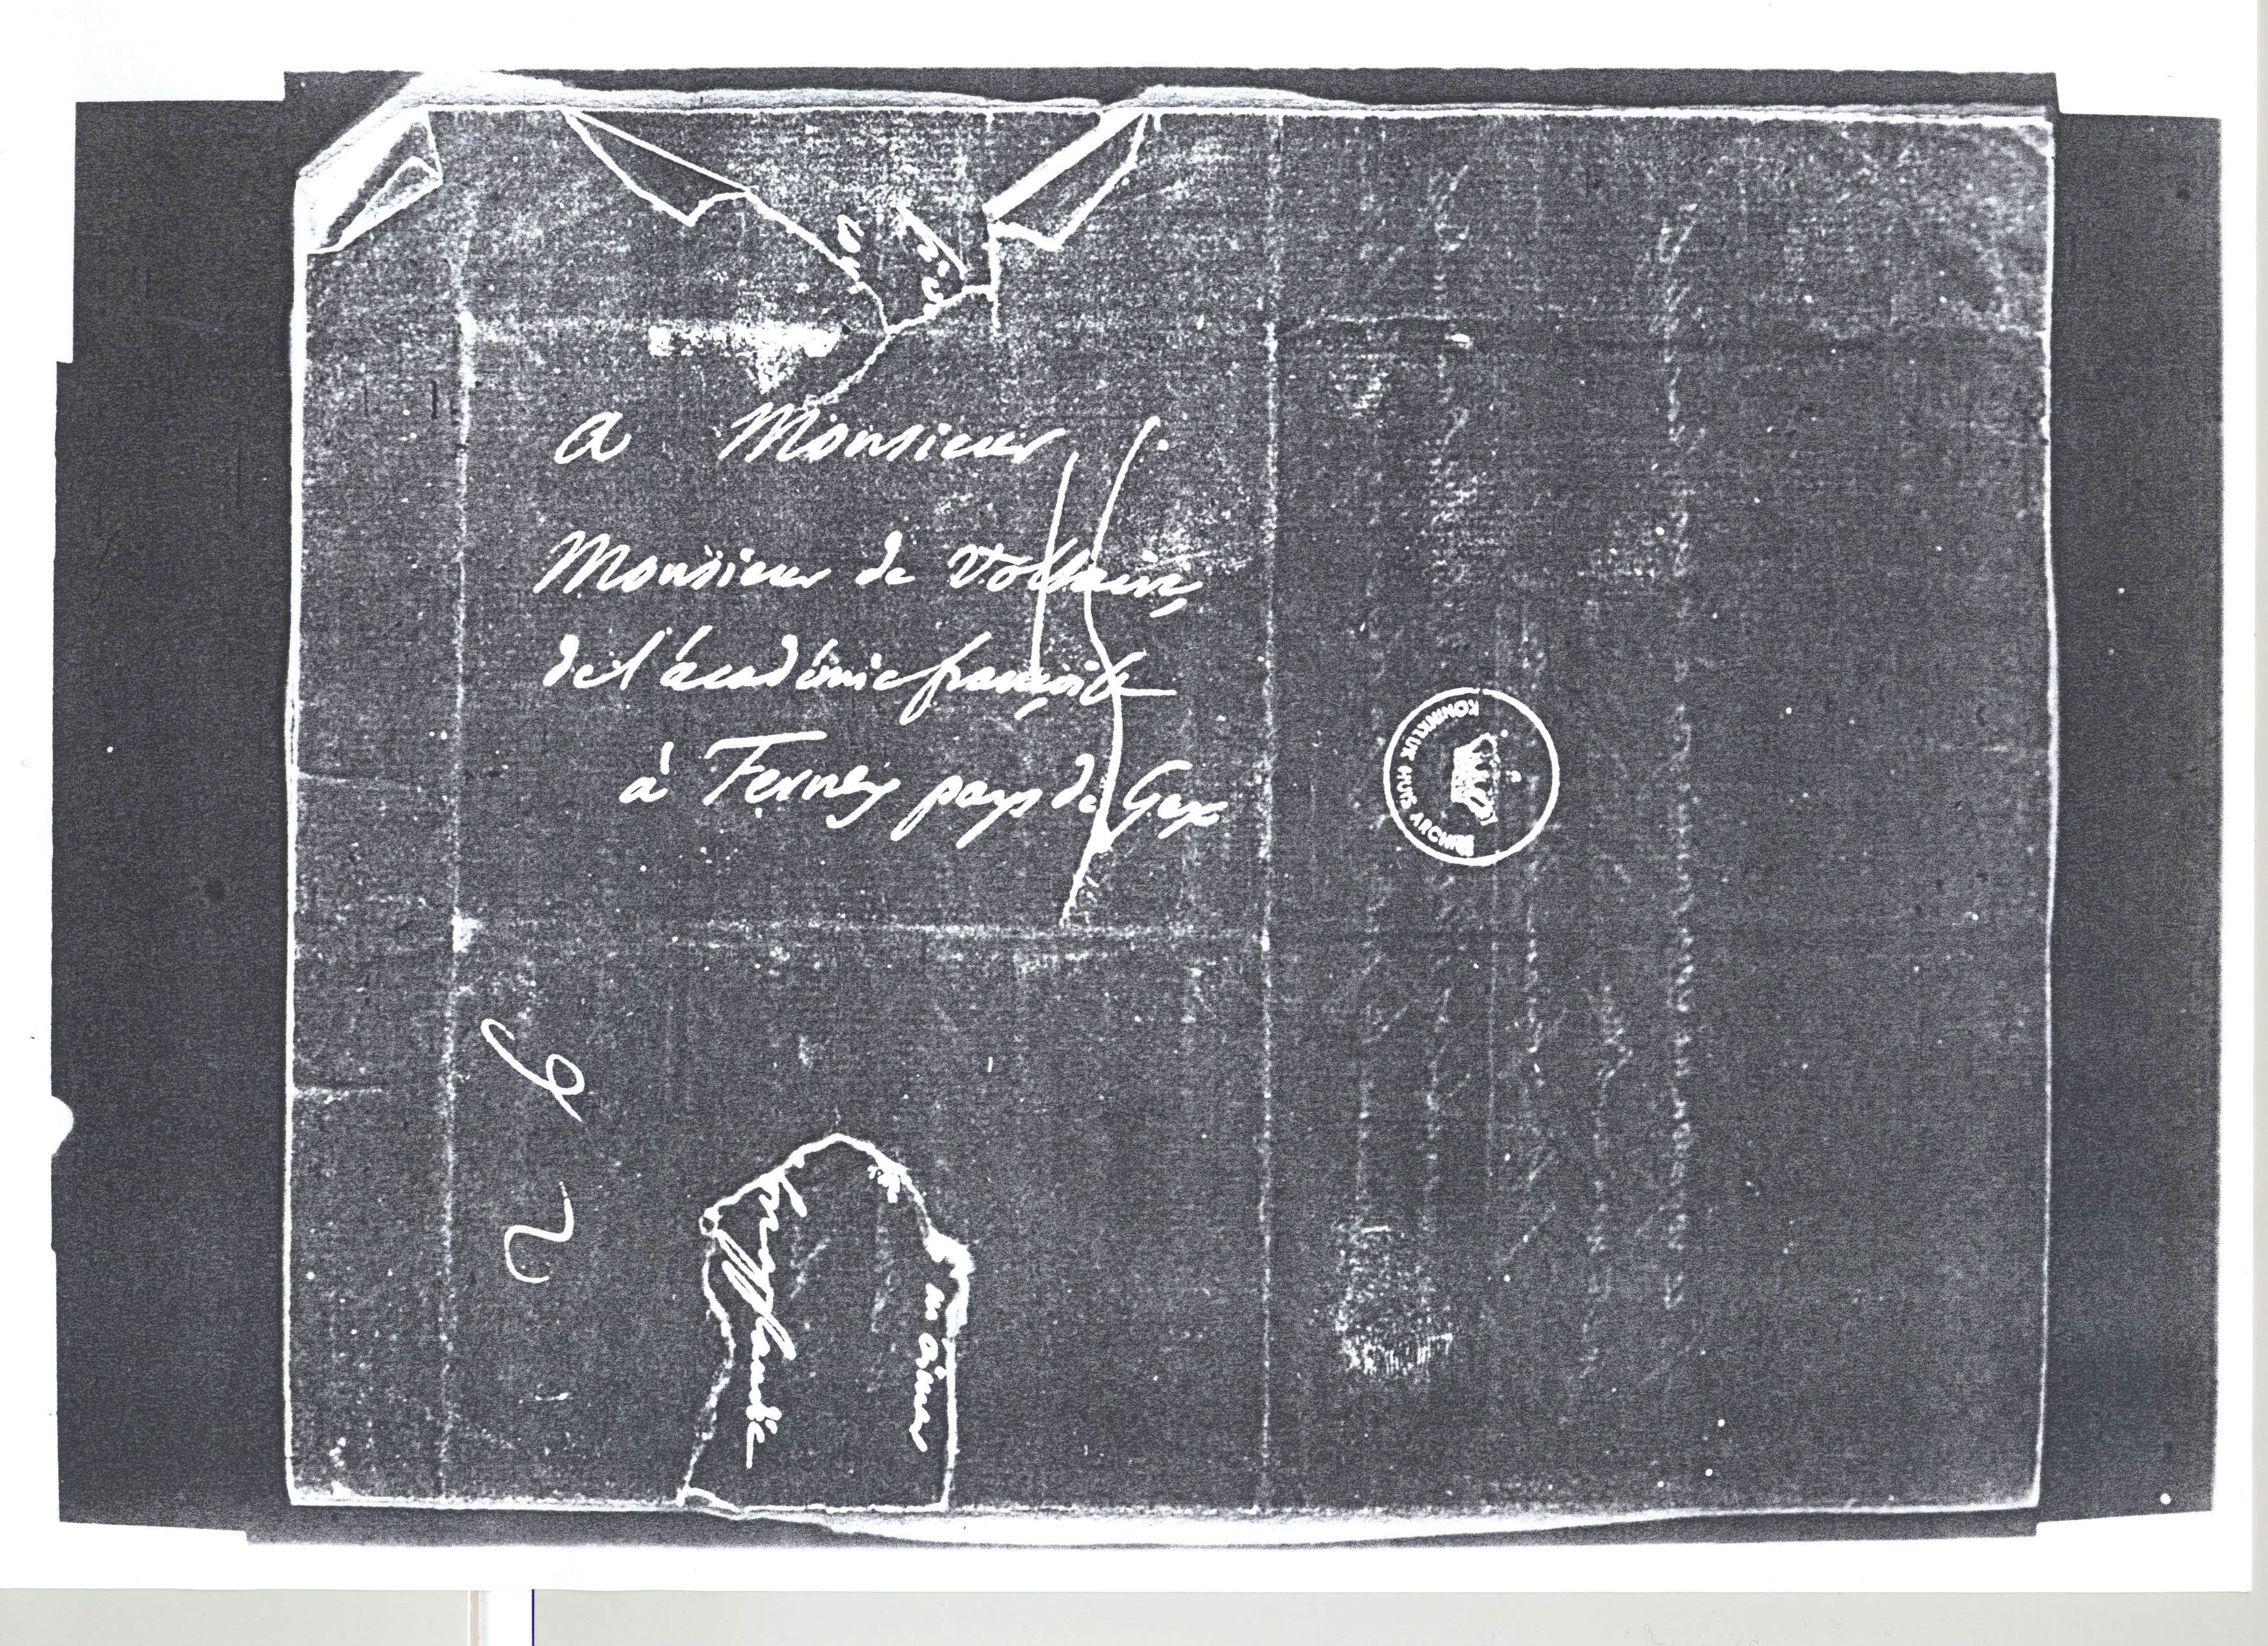 a Monsieur
Monsieur de Voltaire,
de l'académie françoise
à Ferney pays de Gex
KONINKLIJK HUIS ARCHIEF